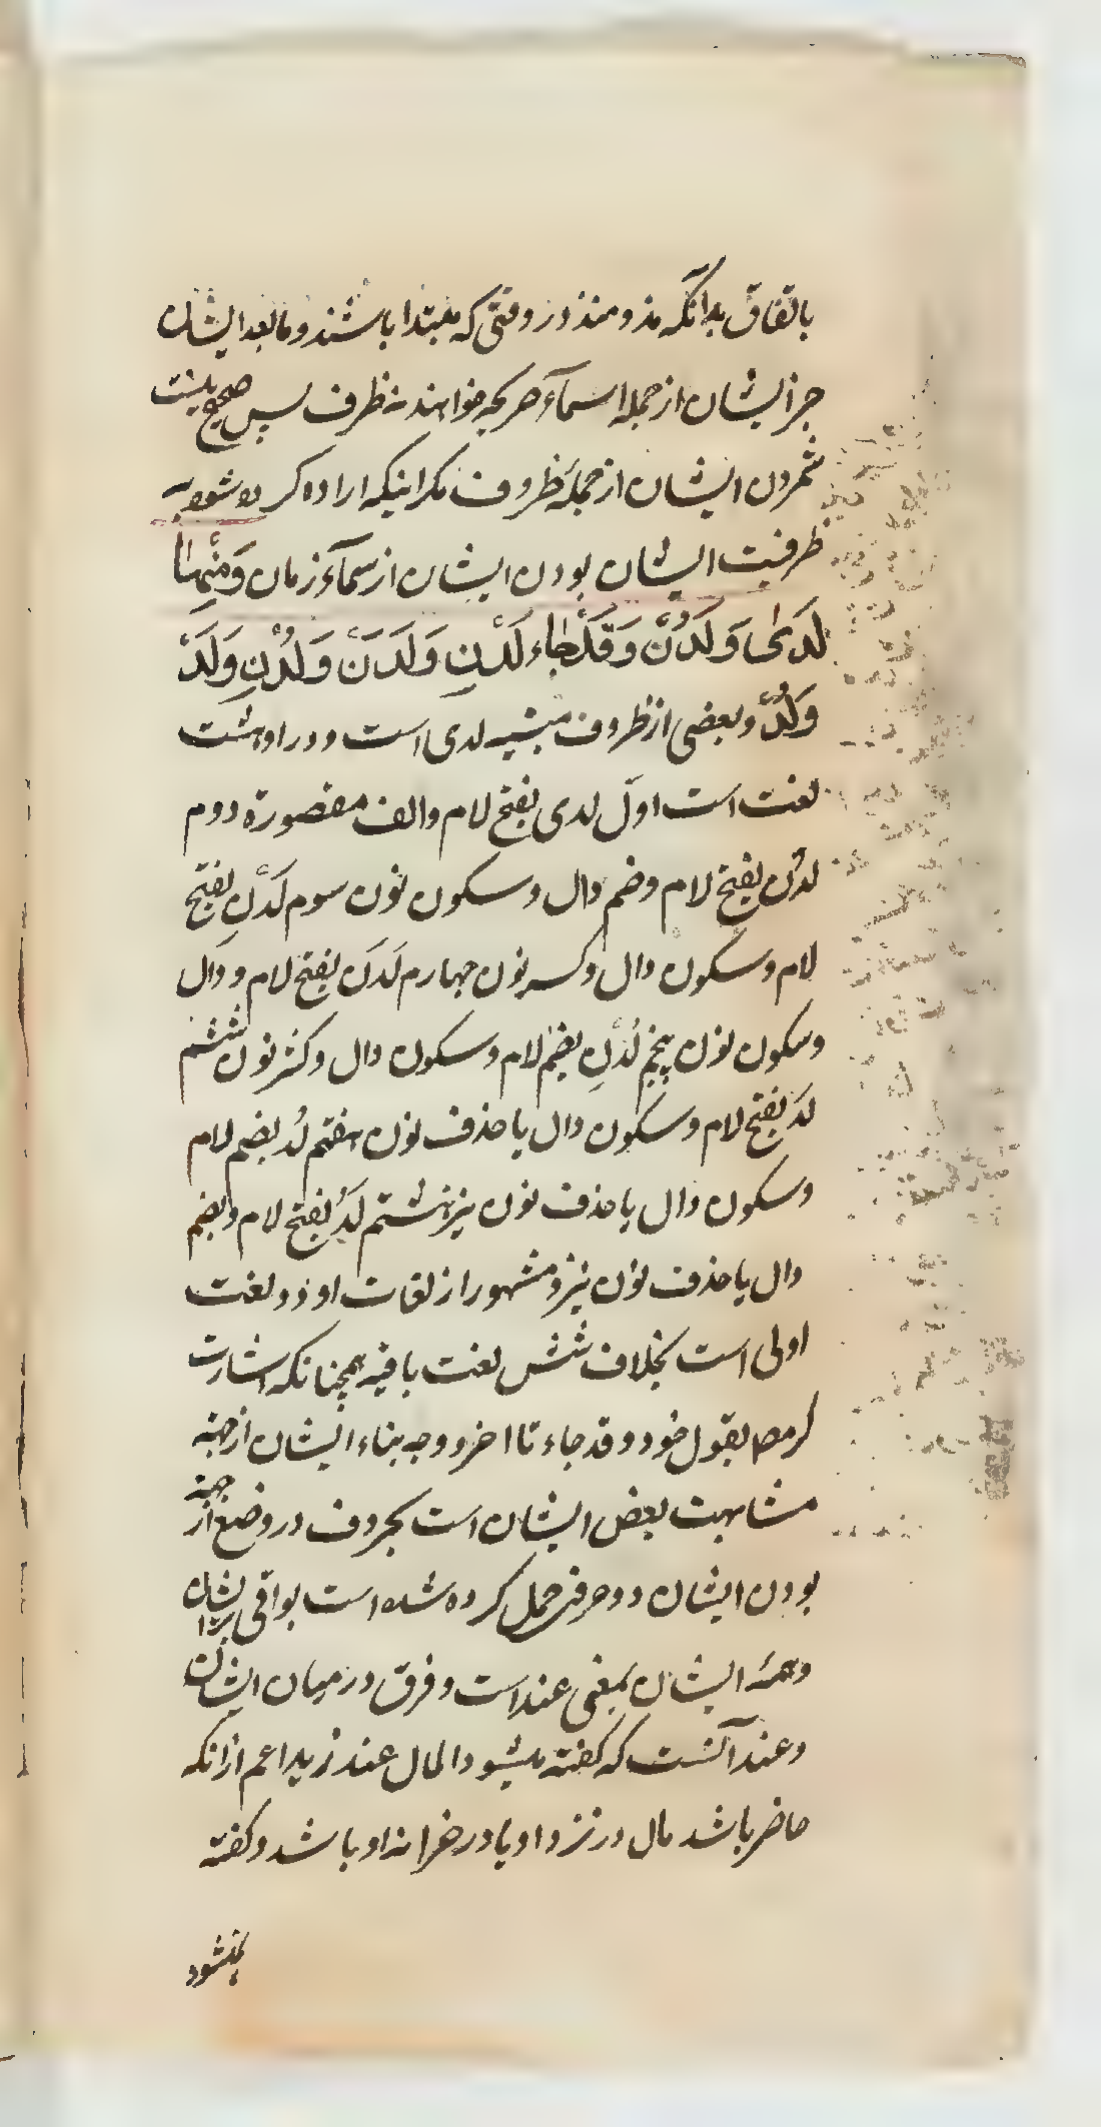 باتفاق بدانکه مذ و منذ در وقتی که مبتدا باشند و مابعد ایشان
خبر ایشان از جمله اسمآء صریحه خواهند نه ظرف پس صحیح نیست
شمردن ایشان از جملهٔ ظروف مکر اینکه اراده کرده شود به
ظرفیت ایشان بودن ایشان از سمآء زمان وَمِنْهٰا
لَدیٰ وَلَدُنْ وَقَدْجٰاء لَدْنِ وَلَدَنْ وَلُدْنِ وَلَدْ
وَلُدْ و بعضی از ظروف مبنیه لدی است و در او هشت
لغت است اوّل لدی بفتح لام و الف مقصورة دوم
لدُن بفتح لام و ضم دال و سکون نون سوم لَدْنِ بفتح
لام و سکون دال و کسر نون چهارم لَدَن بفتح لام و دال
و سکون نون پنجم لُدْنِ بضم لام و سکون دال و کسر نون ششم
لَدْ بفتح لام و سکون دال با حذف نون هفتم لُد بضم لام
و سکون دال با حذف نون نیز هشتم لَدُ بفتح لام و بضم
دال با حذف نون نیز و مشهور از لغات او دو لغت
اولی است بخلاف شش لغت باقیه همچنانکه اشارت
کرد مصـ بقول خود و قد جاء تا اخر و وجه بناء ایشان از جهة
مشابهت بعض ایشان است بحروف در وضع از جهة
بودن ایشان دو حرفی حمل کرده شده است بواقی بر ایشان
و همهٔ ایشان بمعنی عند است و فرق در میان ایشان
و عند آنست که کفته میشود المال عند زید اعم از انکه
حاضر باشد مال در نزد او یا در خزانه او باشد و کفته
نمیشود